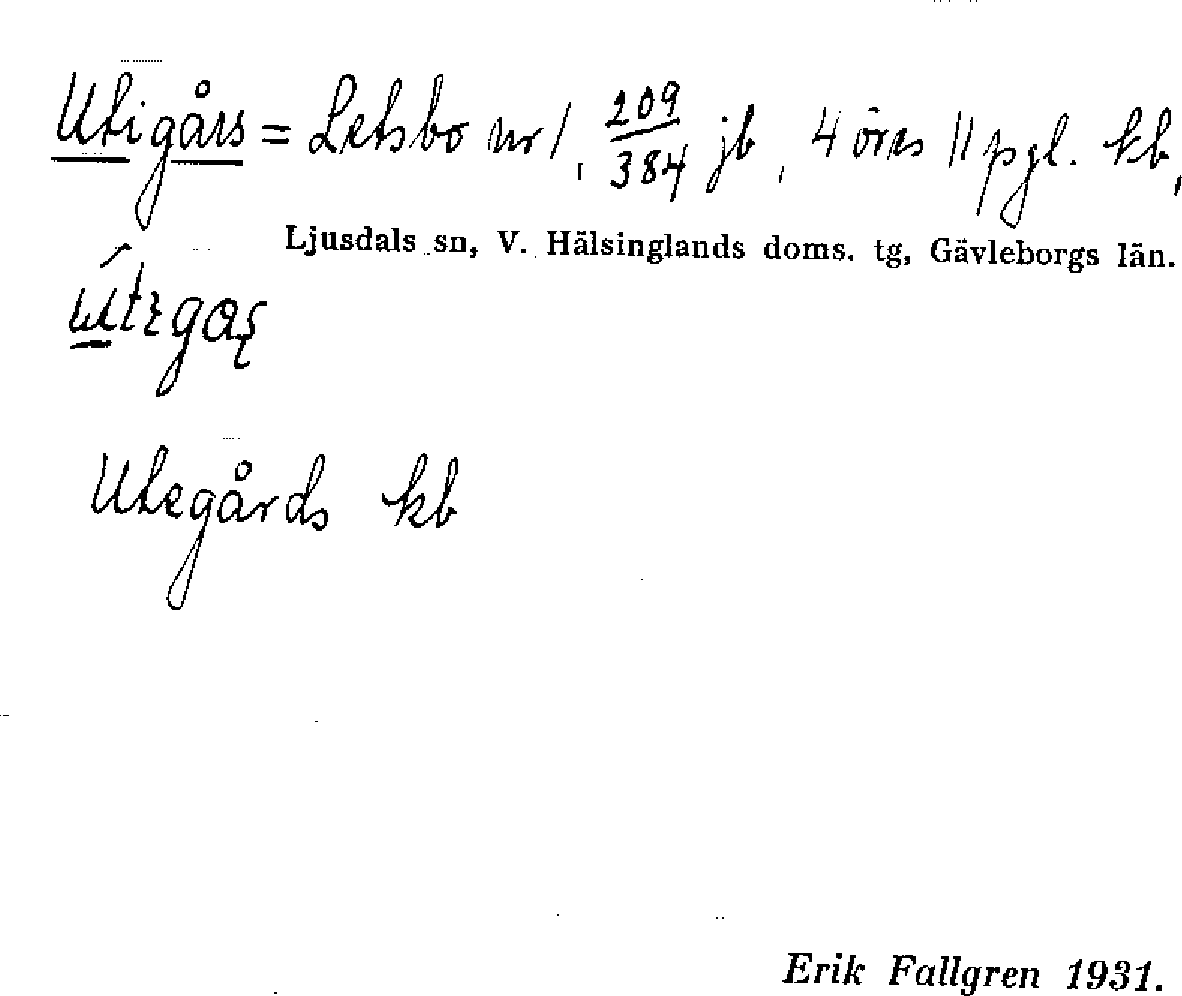 Utigårs = Letsbo nr 1, 209/384 jb, 4 öres 11 pgl. kb,
Ljusdals sn, V. Hälsinglands doms. tg, Gävleborgs län.
Utegårds kb
Erik Fallgren 1931.